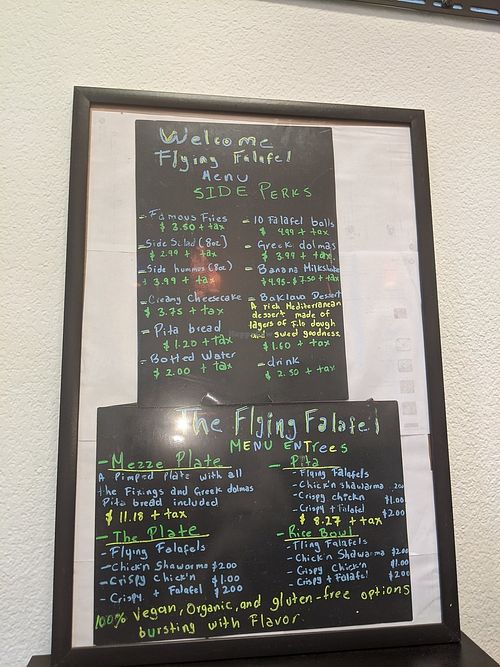 Welcome
Flying Falafel
Menu
SIDE PERKS
- Famous Fries
$ 3.50 + tax
- Side Salad (8oz)
$ 2.99 + tax
- Side hummus (8oz)
$ 3.99 + tax
- Creamy Cheesecake
$ 3.75 + tax
- Pita bread
$ 1.20 + tax
- Botted Water
$ 2.00 + tax
- 10 Falafel balls
$ 4.99 + tax
- Greek dolmas
$ 3.99 + tax
- Banana Milkshake
$4.95 - $7.50 + tax
- Baklava Dessert
A rich Mediterranean
dessert made of
layers of Filo dough
and sweet goodness.
$1.60 + tax
- drink
$ 2.50 + tax
The Flying Falafel
MENU ENTrees
- Mezze Plate
A Pimped Plate with all
the Fixings and Greek dolmas
Pita bread included
$ 11.18 + tax
- The Plate
- Flying Falafels
- Chick'n Shawarma $2.00
- Crispy Chick'n $1.00
- Crispy + Falafel $2.00
- Pita
- Flying Falafels
- Chick'n Shawarma 2.00
- Crispy Chickn $1.00
- Crispy + Falafel $2.00
$ 8.27 + tax
- Rice Bowl
- Fling Falafels
- Chick'n Shawarma $2.00
- Crispy Chick'n $1.00
- Crispy + Falafel $2.00
100% Vegan, Organic, and gluten-free options
bursting with Flavor.